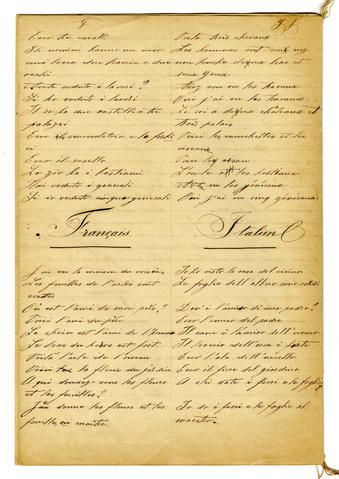 Ecco tre cavalli
Gli uomini hanno un naso
una bocca due braccia e due
occhi
Avete veduto i lavori?
Si ho veduto i lavori
Il re ha due castelli e tre
palazzi
Ecco il vasello
Lo zio ha i bestiami
Hai veduto i generali
Si io veduto cinque generali
Français
J'ai vu la maison du voisin.
Les feuilles de l'arbre sont
vertes
Où est l'ami de mon père?
Voici l'ami du père
Le chien est l'ami de l'homme
Le bras du héros est fort.
Voilà l'aile de l'oiseau
Voici la fleur du jardin
A qui donnez-vous les fleurs
et les feuilles?
Je donne les fleurs et les
feuilles au maître.
Voilà trois chevaux
Les hommes ont un nez
une bouche deux bras et
deux yeux
Avez vous vu les travaux
Oui j'ai vu les travaux
Le roi a deux châteaux et
trois palais
Voici les manchettes et les
ciseaux
Voici les oiseau
L'oncle a les bestiaux
As-tu vu les généraux
Oui j'ai vu cinq généraux
Italien
Io ho visto la casa del vicino
Le foglie dell' albero sono verdi
Dov'è l'amico di mio padre?
Ecco l'amico del padre
Il cane è l'amico dell' uomo
Il braccio dell' eroe è forte
Ecco l'ala dell' uccello
Ecco il fiore del giardino
A chi date i fiori e le foglie?
Io do i fiori e le foglie al
maestro.